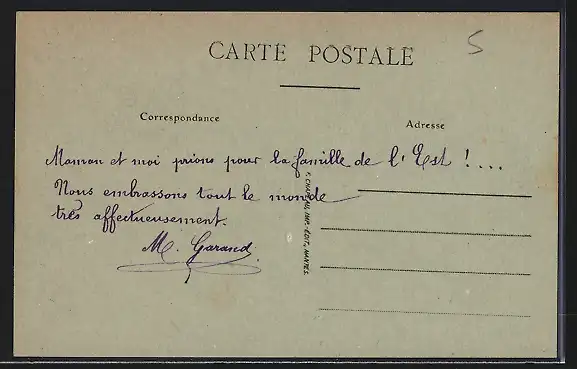 CARTE POSTALE
5
Correspondance
Adresse
Maman et moi prions pour la famille de l'Est !....
Nous embrassons tout le monde
très affectueusement.
M. Garand
IMP. EDIT., NANTES